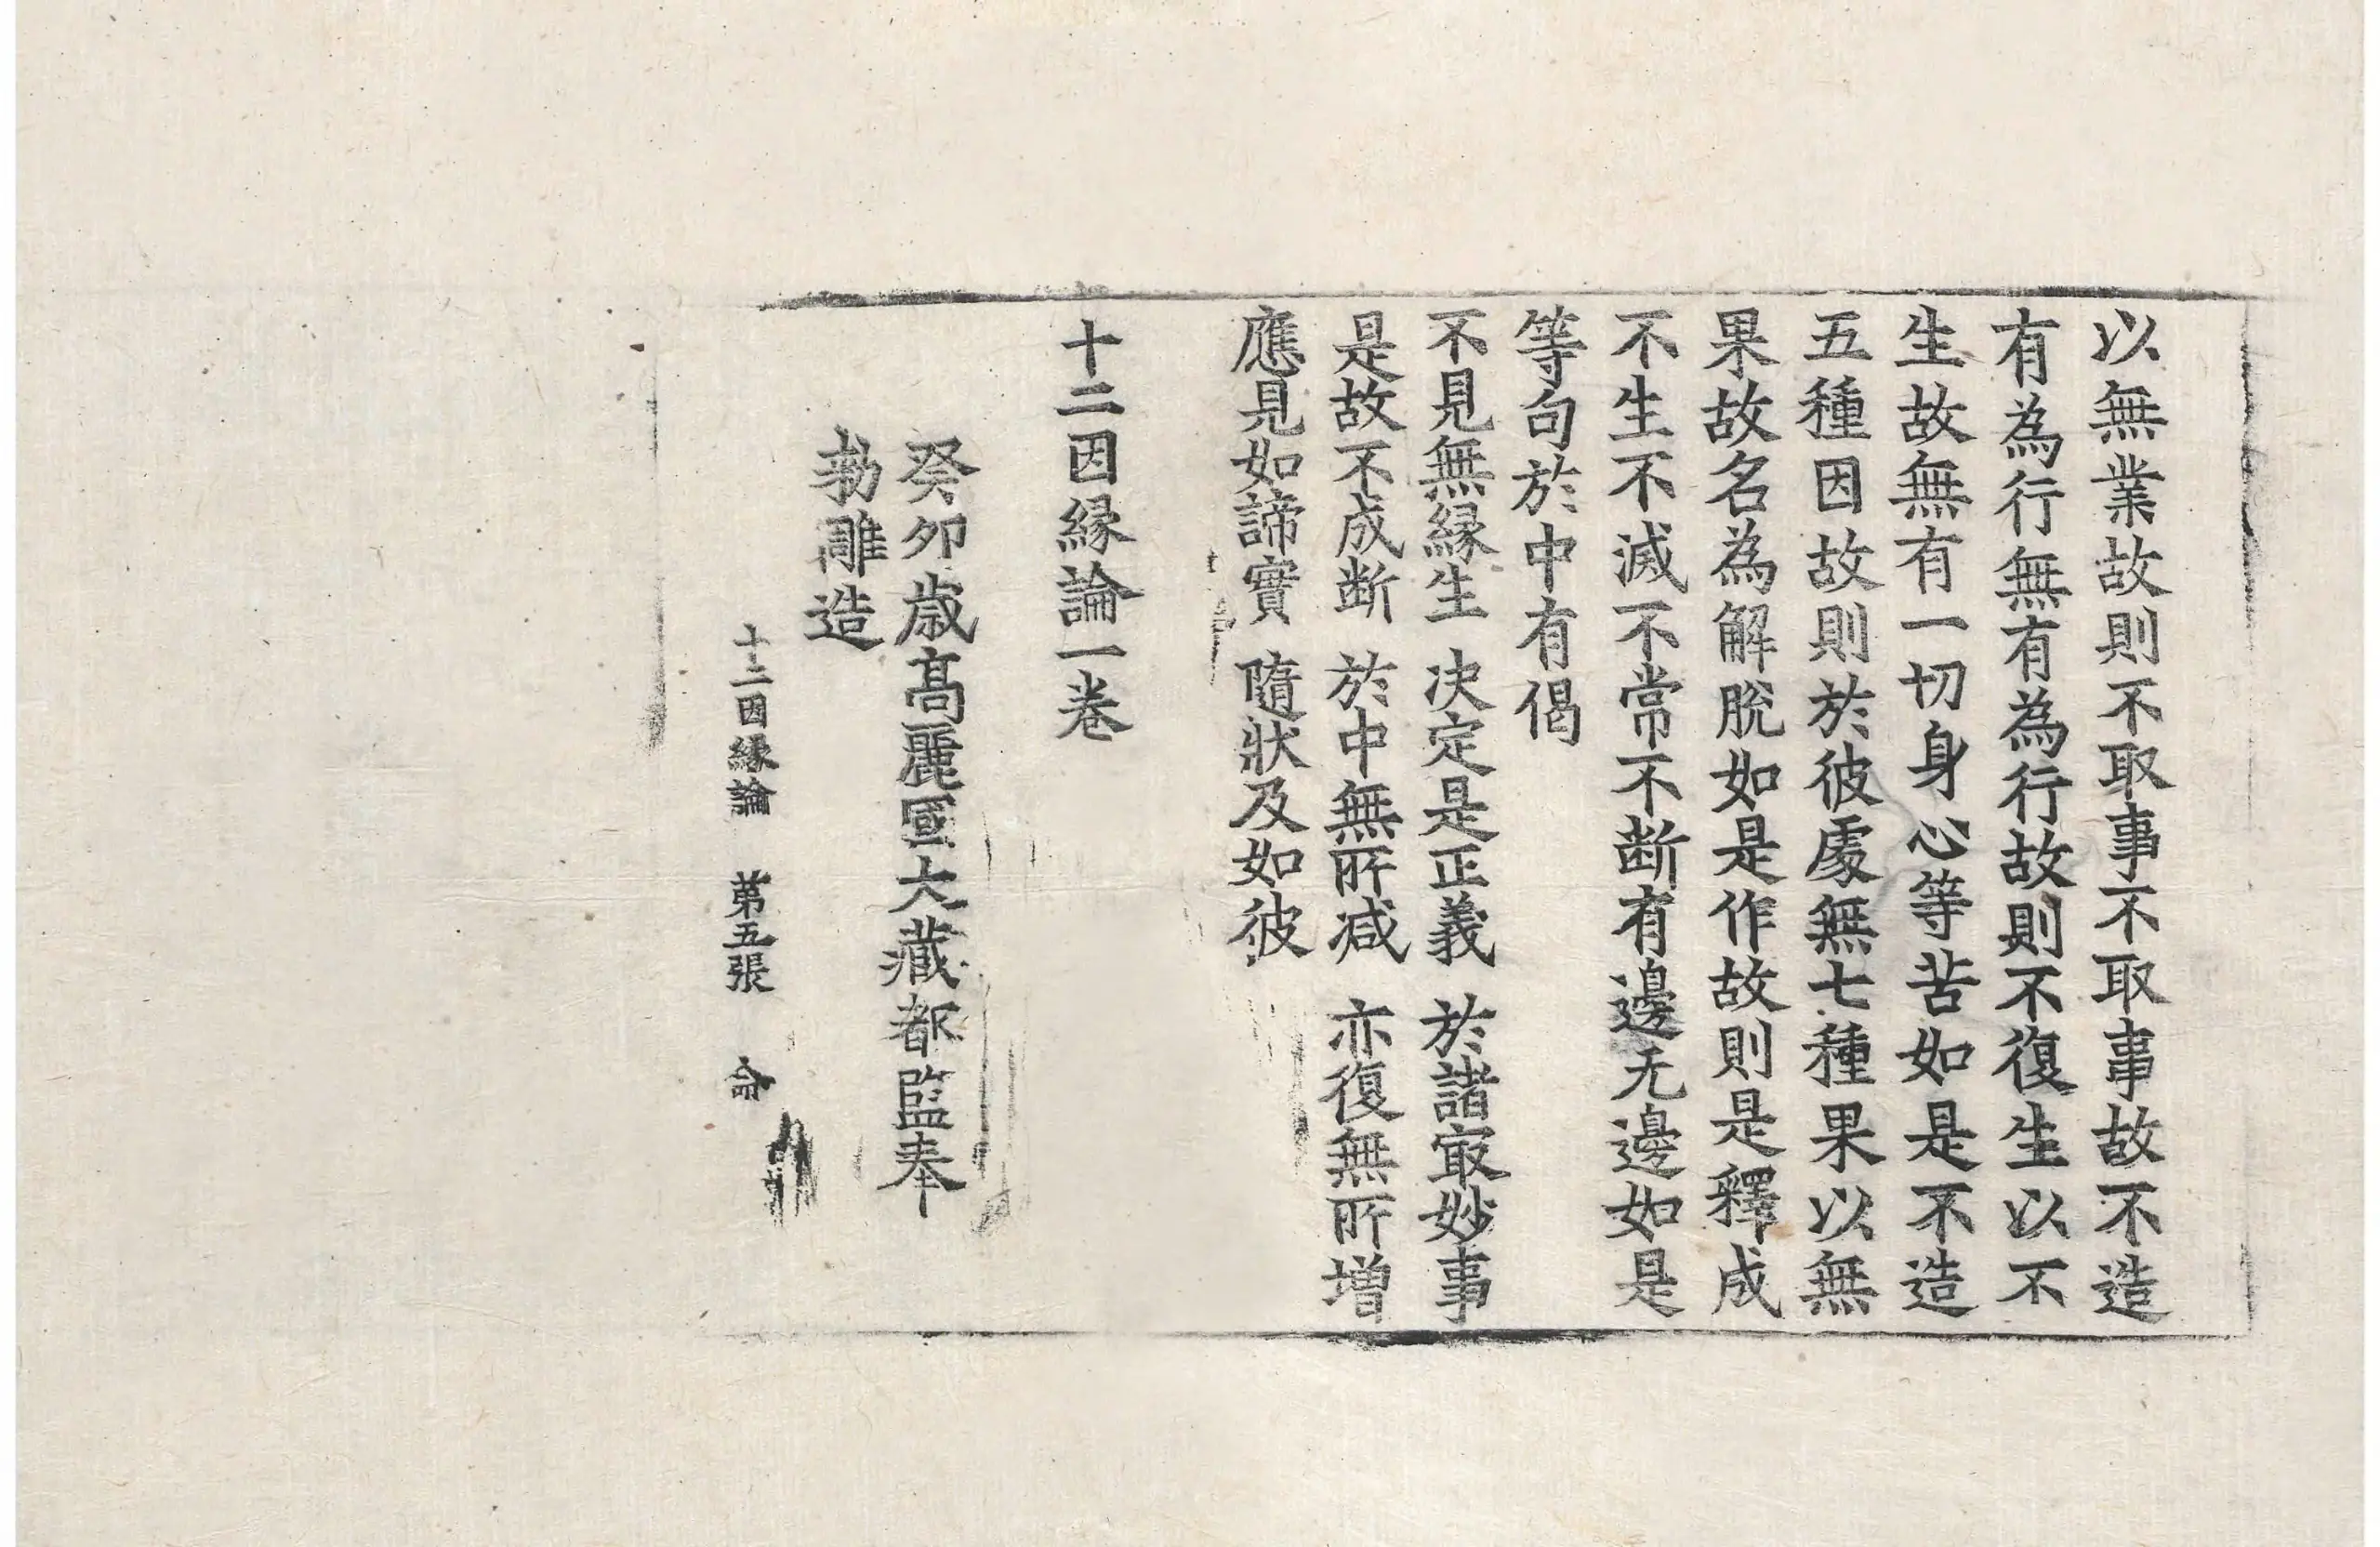 以無業故則不取事不取事故不造
有為行無有為行故則不復生以不
生故無有一切身心等苦如是不造
五種因故則於彼處無七種果以無
果故名為解脫如是作故則是釋成
不生不滅不常不断有邊无邊如是
等句於中有偈
不見無縁生 决定是正義 於諸㝡妙事
是故不成断 於中無所减 亦復無所増
應見如諦實 隨狀及如彼
十二因縁論一卷
癸卯歳髙麗國大藏都監奉
勑雕造
十二因縁論 第五張 命